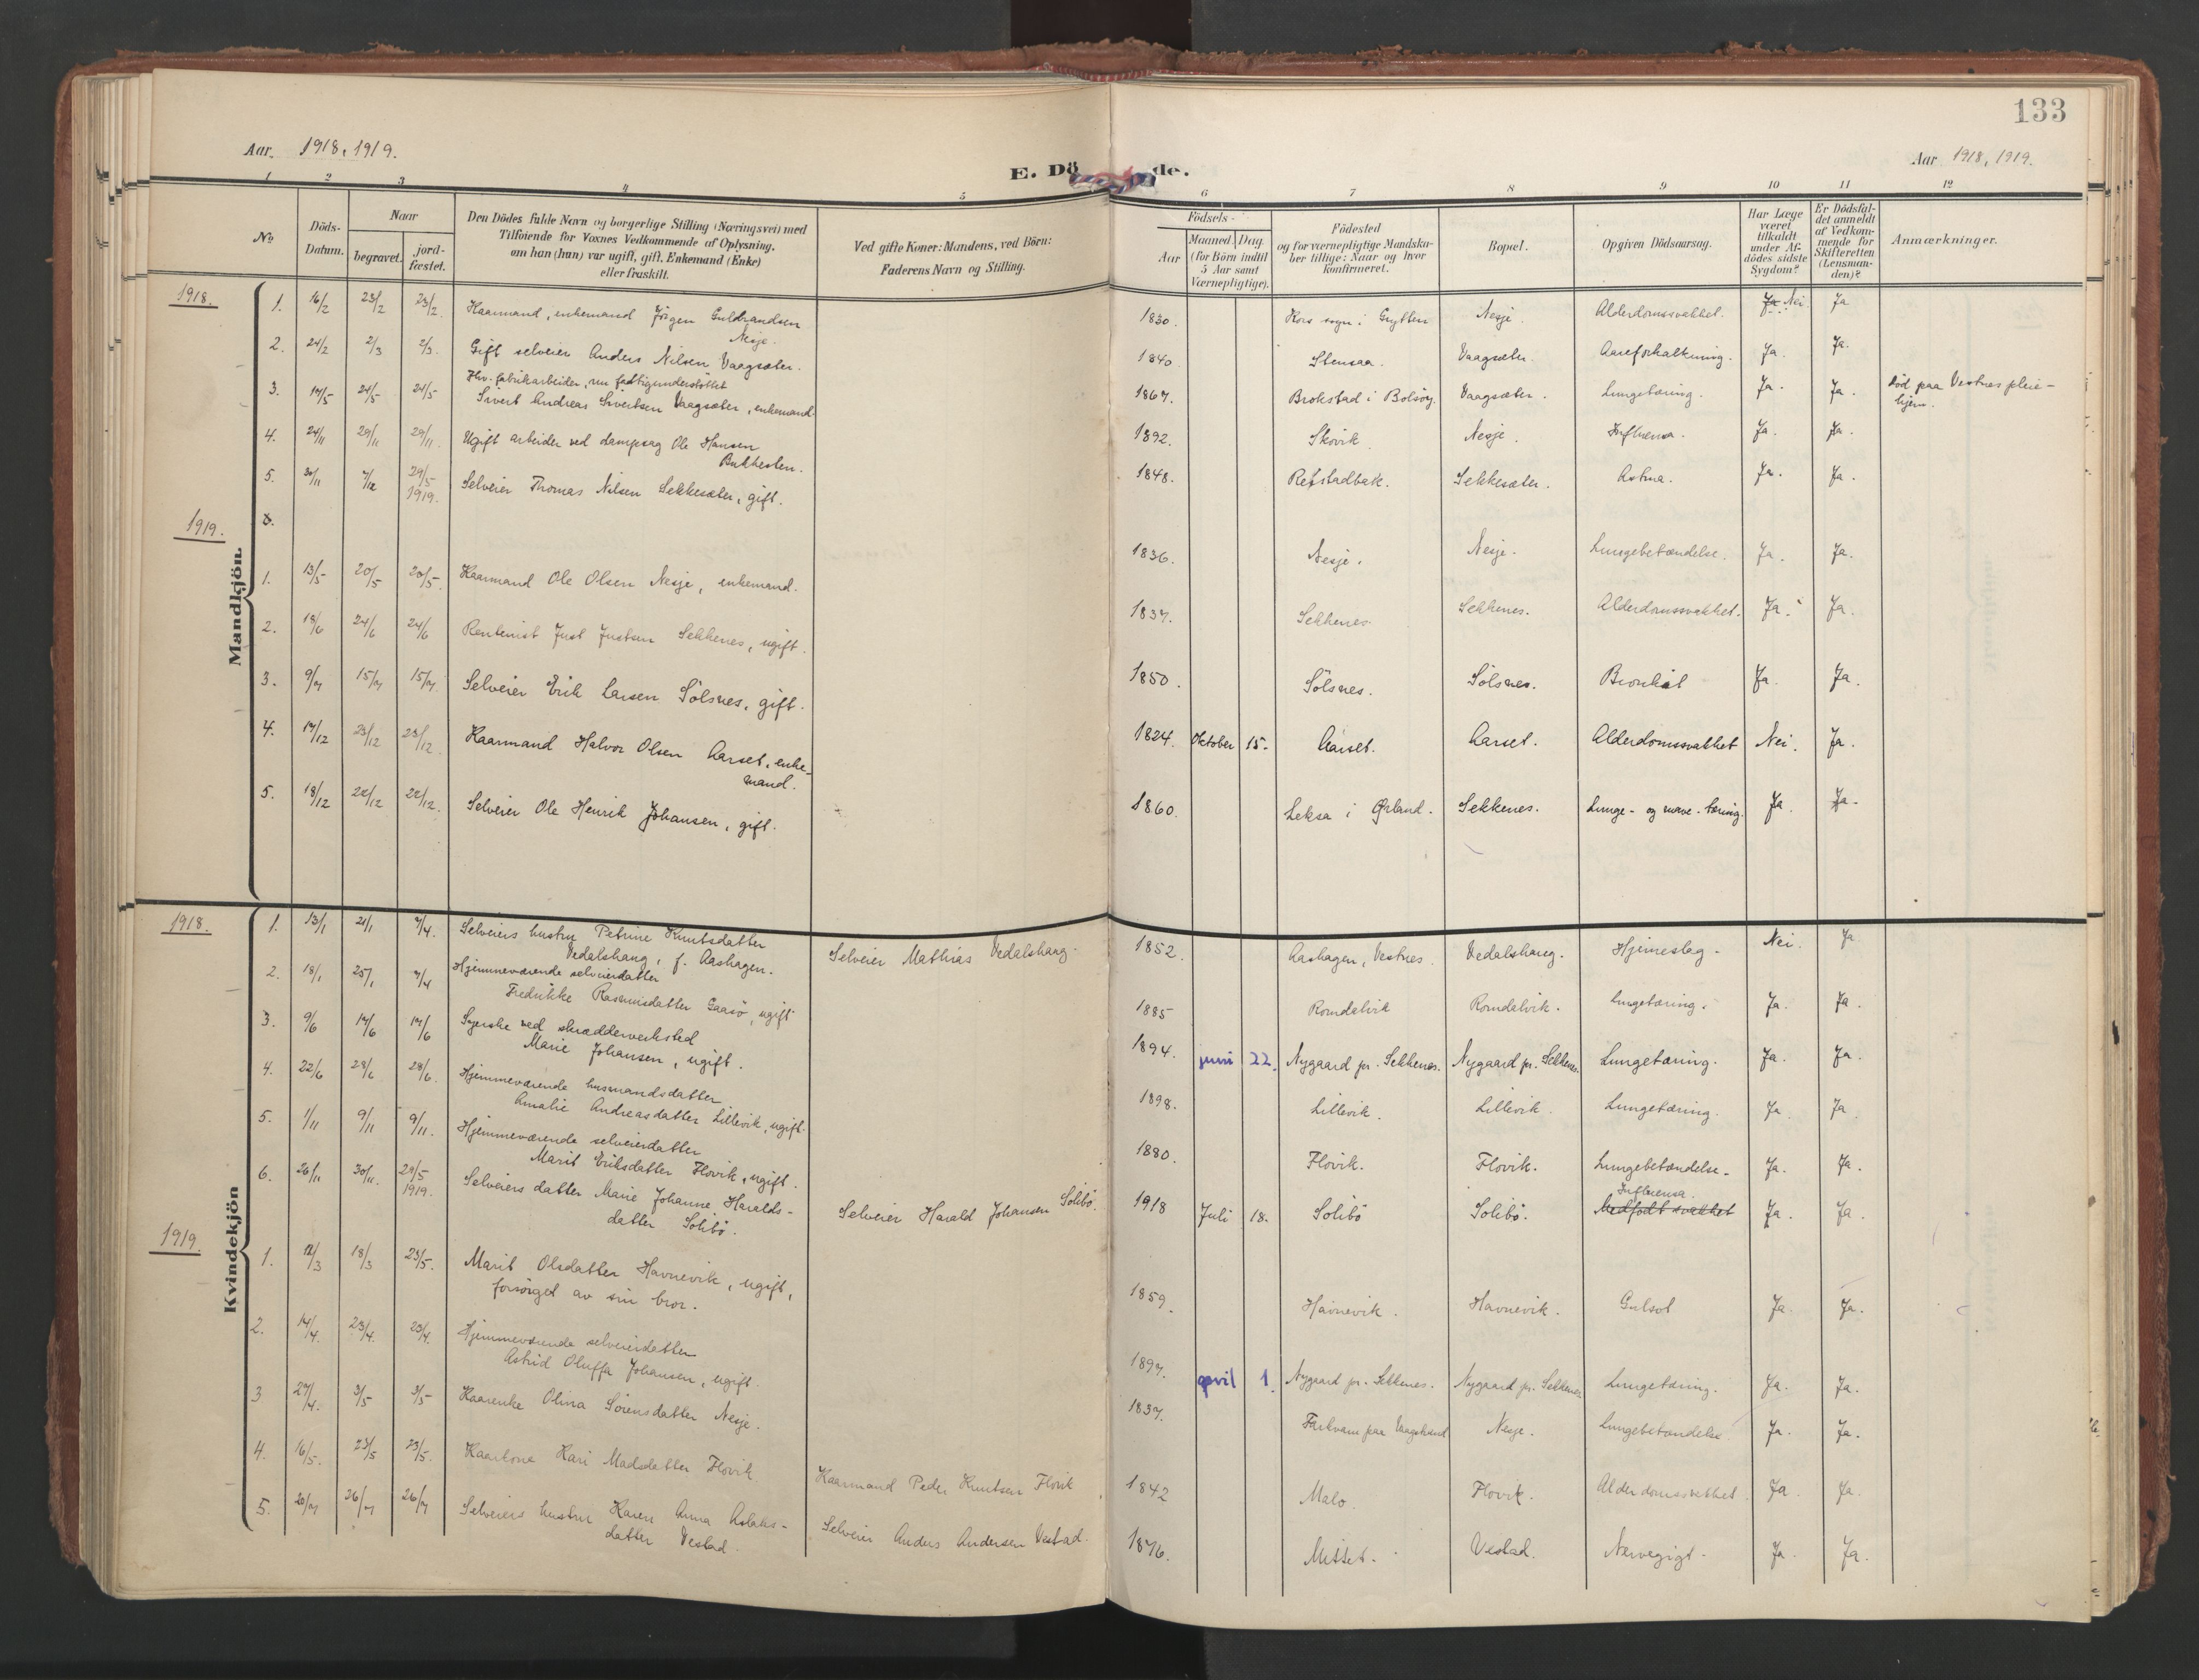 133
Aar. 1918, 1919.
E. Dö de.
Aar 1918, 1919.
1 2 3 4 5 6 7 8 9 10 11 12
No
Döds-Datum.
Naar
begravet.
jord-fæstet.
Den Dödes fulde Navn og borgerlige Stilling (Næringsvei) med
Tilföiende for Voxnes Vedkommende af Oplysning,
om han (hun) var ugift, gift, Enkemand (Enke)
eller fraskilt.
Ved gifte Koner: Mandens, ved Börn:
Faderens Navn og Stilling.
Födsels-
Aar
Maaned. Dag.
(for Börn indtil
5 Aar samt
Værnepligtige).
Födested
og for værnepligtige Mandska-
ber tillige: Naar og hvor
konfirmeret.
Bopæl.
Opgiven Dödsaarsag.
Har Læge
været
tilkaldt
under Af-
dödes sidste
Sygdom?
Er Dödsfal-
det anmeldt
af Vedkom-
mende for
Skifteretten
(Lensman-
den)?
Anmærkninger.
Mandkjön.
1918.
1. 16/2 23/2 23/2. Kaarmand, enkemand Jörgen Guldbrandsen
Nesje. 1830. Kors sogn i Grytten Nesje. Alderdomssvakhet. Ja Nei. Ja
2. 24/2 2/3 2/3. Gift selveier Anders Nilsen Vaagsæter. 1840 Stensaa. Vaagsæter. Aareforkalkning. Ja. Ja.
3. 17/5 24/5 24/5 Fhv. fabrikarbeider, nu fattigunderstöttet
Sivert Andreas Sivertsen Vaagsæter, enkemand. 1867. Brokstad i Bolsöy. Vaagsæter. Lungetæring. Ja. Ja. Död paa Vestnes pleie-
hjem.
4. 24/11 29/11 29/11. Ugift arbeider ved dampsag Ole Hansen
Bukhesten. 1892. Skovik Nesje. Influensa. Ja. Ja.
5. 30/11 7/12 29/5
1919. Selveier Thomas Nilsen Sekkesæter, gift. 1848. Refstadbak. Sekkesæter. Astma. Ja. Ja.
1919.
1. 13/5 20/5 20/5. Kaarmand Ole Olsen Nesje, enkemand. 1836. Nesje. Nesje. Lungebetændelse. Ja. Ja.
2. 18/6 24/6 24/6 Rentenist Just Justsen Sekkenes, ugift. 1837. Sekkenes. Sekkenes. Alderdomssvakhet. Ja. Ja.
3. 9/7 15/7 15/7. Selveier Erik Larsen Sölsnes, gift. 1850. Sölsnes. Sölsnes. Bronkit Ja. Ja.
4. 17/12 23/12 23/12. Kaarmand Halvor Olsen Aarset, enke-
mand. 1824. Oktober 15. Aarset. Aarset. Alderdomssvakhet Nei. Ja.
5. 18/12 22/12 22/12. Selveier Ole Henrik Johansen, gift. 1860. Leksa i Ørland. Sekkenes. Lunge- og mave-tæring. Ja. Ja.
Kvindekjön
1918.
1. 13/1 21/1 7/4. Selveiers hustru Petrine Knutsdatter
Vedalshaug, f. Aashagen. Selveier Mathias Vedalshaug. 1852. Aashagen, Vestnes. Vedalshaug. Hjerneslag. Nei. Ja
2. 18/1 25/1 7/4 Hjemmeværende selveierdatter
Fredrikke Rasmusdatter Gaasö, ugift 1885 Romdalvik Romdalvik. Lungetæring. Ja. Ja.
3. 9/6 17/6 17/6 Syerske ved skrædderverksted
Marie Johansen, ugift. 1894. juni 22. Nygaard pr. Sekkenes. Nygaard pr. Sekkenes. Lungetæring. Ja. Ja.
4. 22/6 28/6 28/6. Hjemmeværende husmandsdatter
Amalie Andreasdatter Lillevik, ugift. 1898. Lillevik. Lillevik. Lungetæring. Ja. Ja.
5. 1/11 9/11 9/11. Hjemmeværende selveierdatter
Marit Eriksdatter Flovik, ugift. 1880. Flovik. Flovik. Lungebetændelse. Ja. Ja.
6. 26/11 30/11. 29/5
1919. Selveiers datter Marie Johanne Haralds-
datter Solibö. Selveier Harald Johansen Solibö. 1918 Juli 18. Solibö Solibö. Influensa.
Medfödt svakhet Ja. Ja.
1919.
1. 12/3 18/3 23/5. Marit Olsdatter Havnevik, ugift,
forsörget av sin bror. 1859. Havnevik. Havnevik. Gulsot Ja. Ja.
2. 14/4. 23/4. 23/4. Hjemmeværende selveierdatter
Astrid Oluffa Johansen, ugift. 1897. april 1. Nygaard pr. Sekkenes. Nygaard pr. Sekkenes Lungetæring. Ja. Ja.
3 27/4. 3/5 3/5 Kaarenke Olina Sörensdatter Nesje. 1837. Farkvam paa Vaagstrand Nesje. Lungebetændelse. Ja. Ja.
4. 16/5. 23/5 23/5. Kaarkone Kari Madsdatter Flovik Kaarmand Peder Knutsen Flovik 1842 Malo. Flovik. Alderdomssvakhet. Ja. Ja.
5. 20/7 26/7 26/7 Selveiers hustru Karen Anna Aslaks-
datter Vestad. Selveier Anders Andersen Vestad. 1876. Mittet. Vestad. Nervegigt. Ja. Ja.